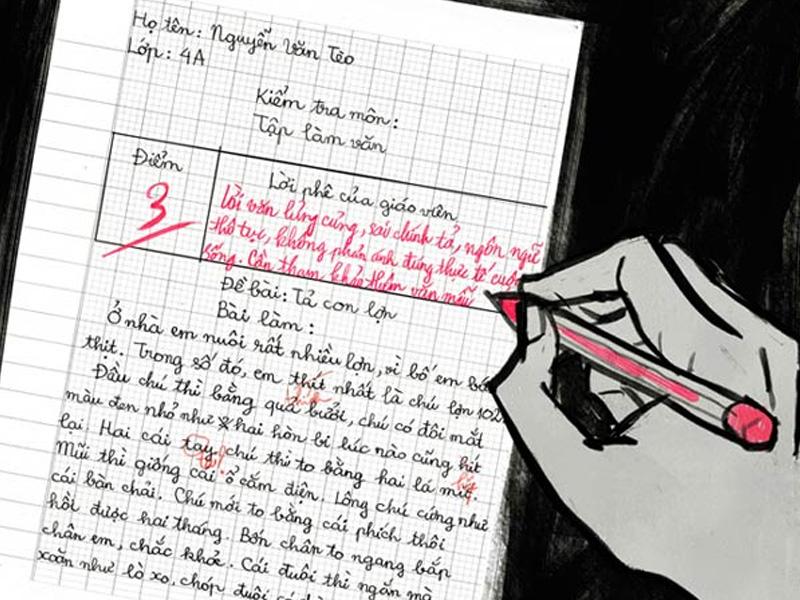 Họ tên: Nguyễn Văn Tèo
Lớp: 4A
Kiểm tra môn:
Tập làm văn
Điểm
3
Lời phê của giáo viên
Lời văn lủng củng, sai chính tả, ngôn ngữ
thô tục, không phản ánh đúng thực tế cuộc
sống. Cần tham khảo thêm văn mẫu
Đề bài: Tả con lợn
Bài làm:
Ở nhà em nuôi rất nhiều lợn, vì bố em
thịt. Trong số đó, em thít nhất là chú lợn 102.
Đầu chú thì bằng quả bưởi, chú có đôi mắt
màu đen nhỏ như hai hòn bi lúc nào cũng hít
lại. Hai cái tay chú thì to bằng hai lá mít.
Mũi thì giống cái ổ cắm điện. Lông chú cứng như
cái bàn chải. Chú mới to bằng cái phích thôi
hồi được hai tháng. Bốn chân to ngang bắp
chân em, chắc khoẻ. Cái đuôi thì ngắn mà
xoăn như lò xo, chóp đuôi có